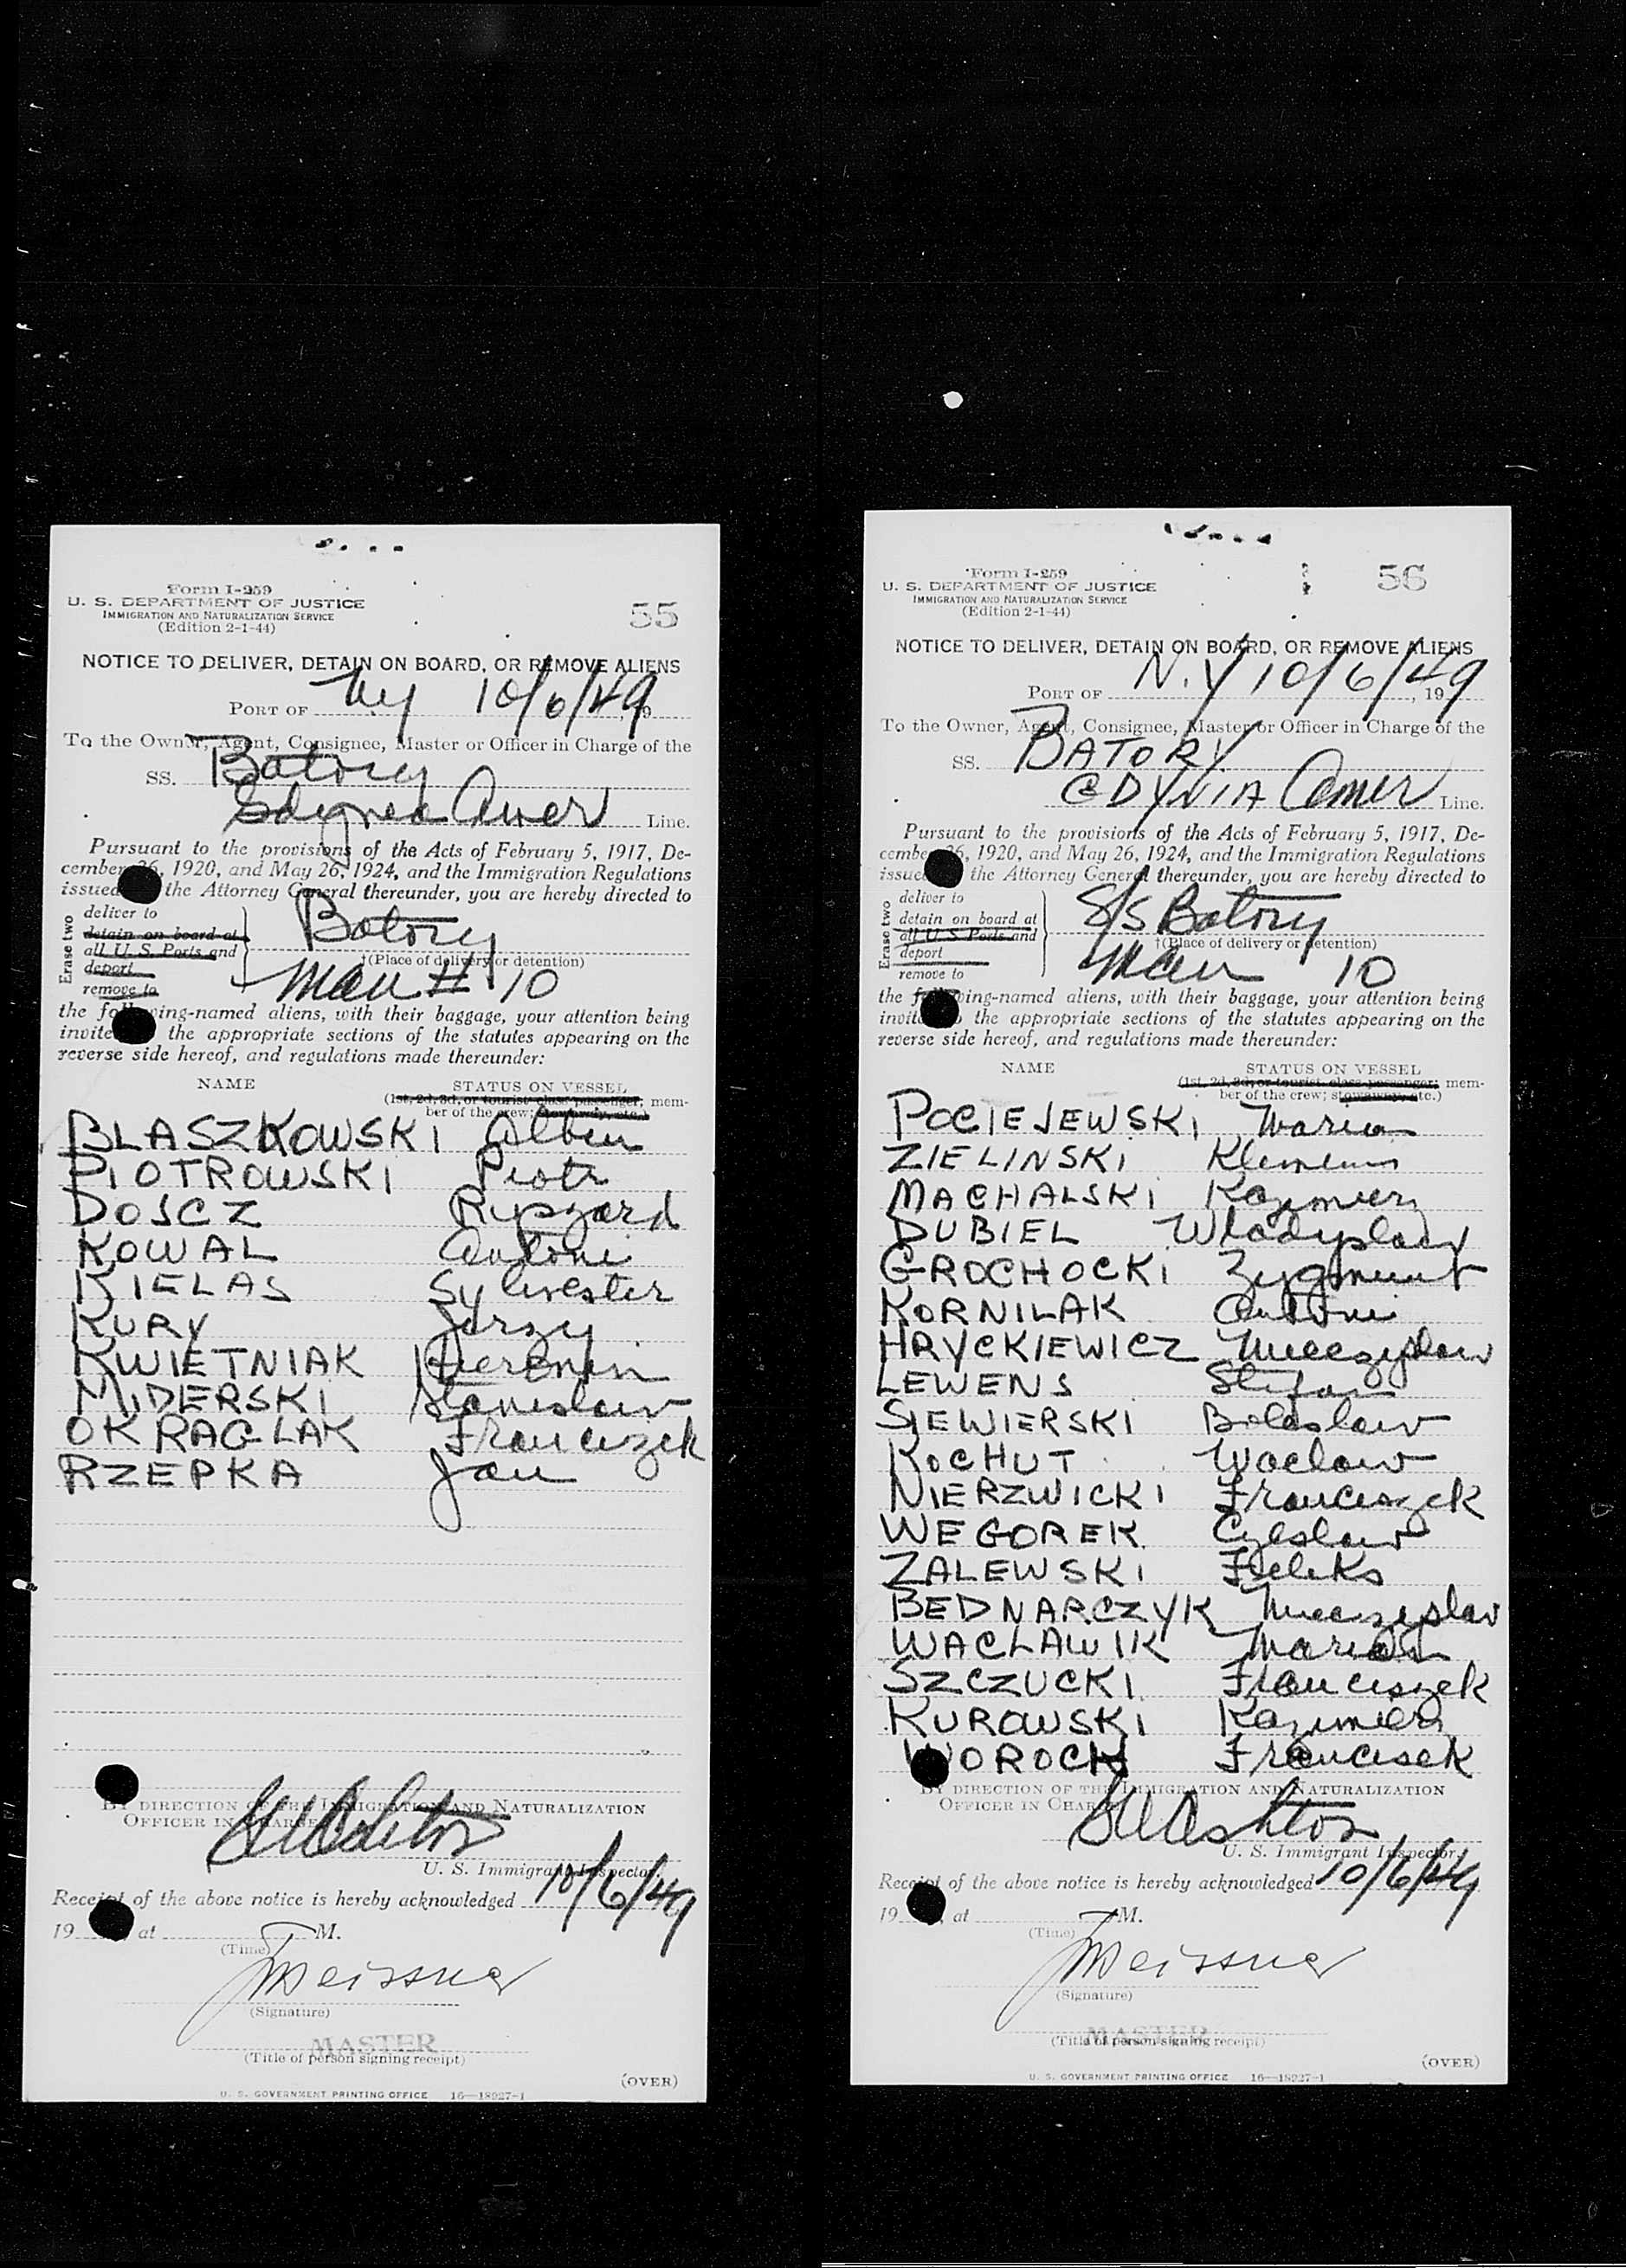 Form I-259
U. S. DEPARTMENT OF JUSTICE
IMMIGRATION AND NATURALIZATION SERVICE
(Edition 2-1-44)
55
NOTICE TO DELIVER, DETAIN ON BOARD, OR REMOVE ALIENS
PORT OF NY 10/6/49
To the Owner, Agent, Consignee, Master or Officer in Charge of the
SS. Batory
Gdynia Amer Line.
Pursuant to the provisions of the Acts of February 5, 1917, De-
cember 26, 1920, and May 26, 1924, and the Immigration Regulations
issued the Attorney General thereunder, you are hereby directed to
Erase two
deliver to
detain on board at
all U. S. Ports and
deport
remove to
Batory
†(Place of delivery or detention)
Man # 10
the following-named aliens, with their baggage, your attention being
invited the appropriate sections of the statutes appearing on the
reverse side hereof, and regulations made thereunder:
NAME STATUS ON VESSEL
(1st, 2d, 3d, or tourist class passenger; mem-
ber of the crew; stowaway, etc.)
BLASZKOWSKI Albin
PIOTROWSKI Piotr
DOSCZ Ryszard
KOWAL Antoni
KIELAS Sylvester
KURY Jerzy
KWIETNIAK
MIDERSKI Stanislaw
OKRAGLAK Franciszek
RZEPKA Jan
BY DIRECTION OF THE IMMIGRATION AND NATURALIZATION
OFFICER IN CHARGE
U. S. Immigrant Inspector.
Receipt of the above notice is hereby acknowledged 10/6/49
19 at M.
(Time)
Meissner
(Signature)
MASTER
(Title of person signing receipt)
(OVER)
U. S. GOVERNMENT PRINTING OFFICE 16—18927-1
Form I-259
U. S. DEPARTMENT OF JUSTICE
IMMIGRATION AND NATURALIZATION SERVICE
(Edition 2-1-44)
56
NOTICE TO DELIVER, DETAIN ON BOARD, OR REMOVE ALIENS
PORT OF N.Y 10/6/49, 19
To the Owner, Agent, Consignee, Master or Officer in Charge of the
SS. BATORY
GDYNIA Amer Line.
Pursuant to the provisions of the Acts of February 5, 1917, De-
cember 26, 1920, and May 26, 1924, and the Immigration Regulations
issued the Attorney General thereunder, you are hereby directed to
Erase two
deliver to
detain on board at
all U. S. Ports and
deport
remove to
S/S Batory
†(Place of delivery or detention)
Man 10
the following-named aliens, with their baggage, your attention being
invited the appropriate sections of the statutes appearing on the
reverse side hereof, and regulations made thereunder:
NAME STATUS ON VESSEL
(1st, 2d, 3d, or tourist class passenger; mem-
ber of the crew; stowaway, etc.)
POCIEJEWSKI Marian
ZIELINSKI Klemens
MACHALSKI Kazimierz
DUBIEL Wladyslaw
GROCHOCKI Zygmunt
KORNILAK Antoni
HRYCKIEWICZ Mieczyslaw
LEWENS Stefan
SIEWIERSKI Boleslaw
KOCHUT Waclaw
NIERZWICKI Franciszek
WEGOREK Czeslaw
ZALEWSKI Feliks
BEDNARCZYK Mieczyslaw
WACLAWIK Marian
SZCZUCKI Franciszek
KUROWSKI Kazimierz
WOROCH Francisek
BY DIRECTION OF THE IMMIGRATION AND NATURALIZATION
OFFICER IN CHARGE
Ashton
U. S. Immigrant Inspector.
Receipt of the above notice is hereby acknowledged 10/6/49
19 , at M.
(Time)
Meissner
(Signature)
MASTER
(Title of person signing receipt)
(OVER)
U. S. GOVERNMENT PRINTING OFFICE 16—18927-1